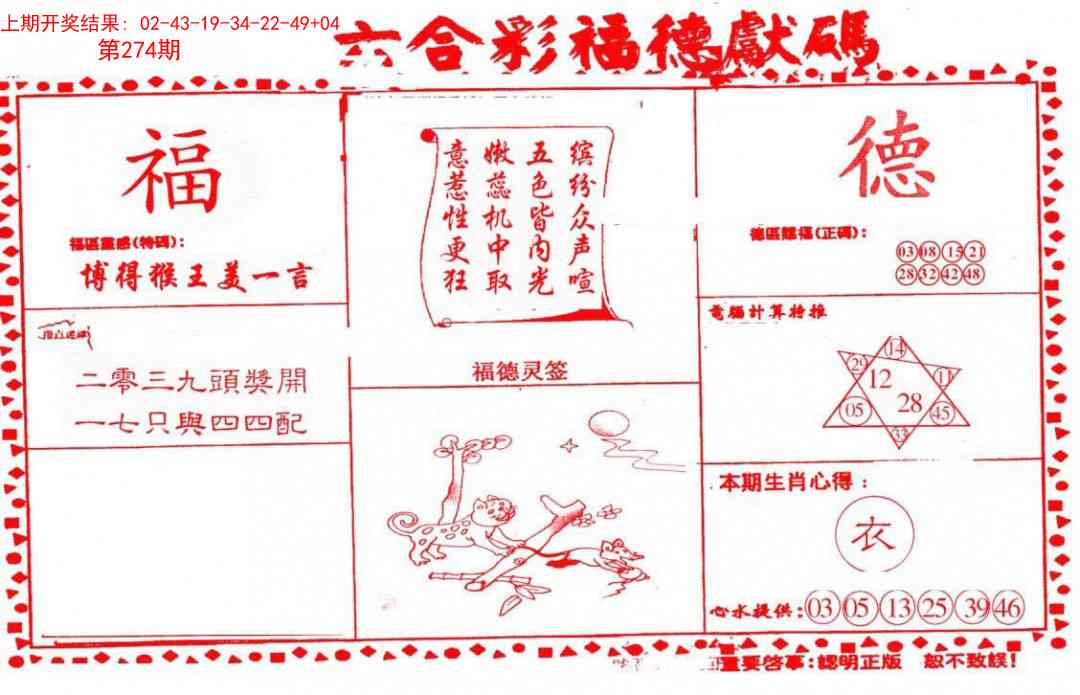 上期开奖结果: 02-43-19-34-22-49+04
第274期
六合彩福德獻碼
福
福區靈感(特碼):
博得猴王美一言
二零三九頭獎開
一七只與四四配
缤纷众声喧
五色皆内光
嫩蕊机中取
意惹性更狂
福德灵签
德
德區賜福(正碼):
03 08 15 21
28 32 42 48
電腦計算特推
14
29 12 11
05 28 45
33
本期生肖心得:
衣
心水提供:03 05 13 25 39 46
重要啓事:認明正版 恕不致誤!